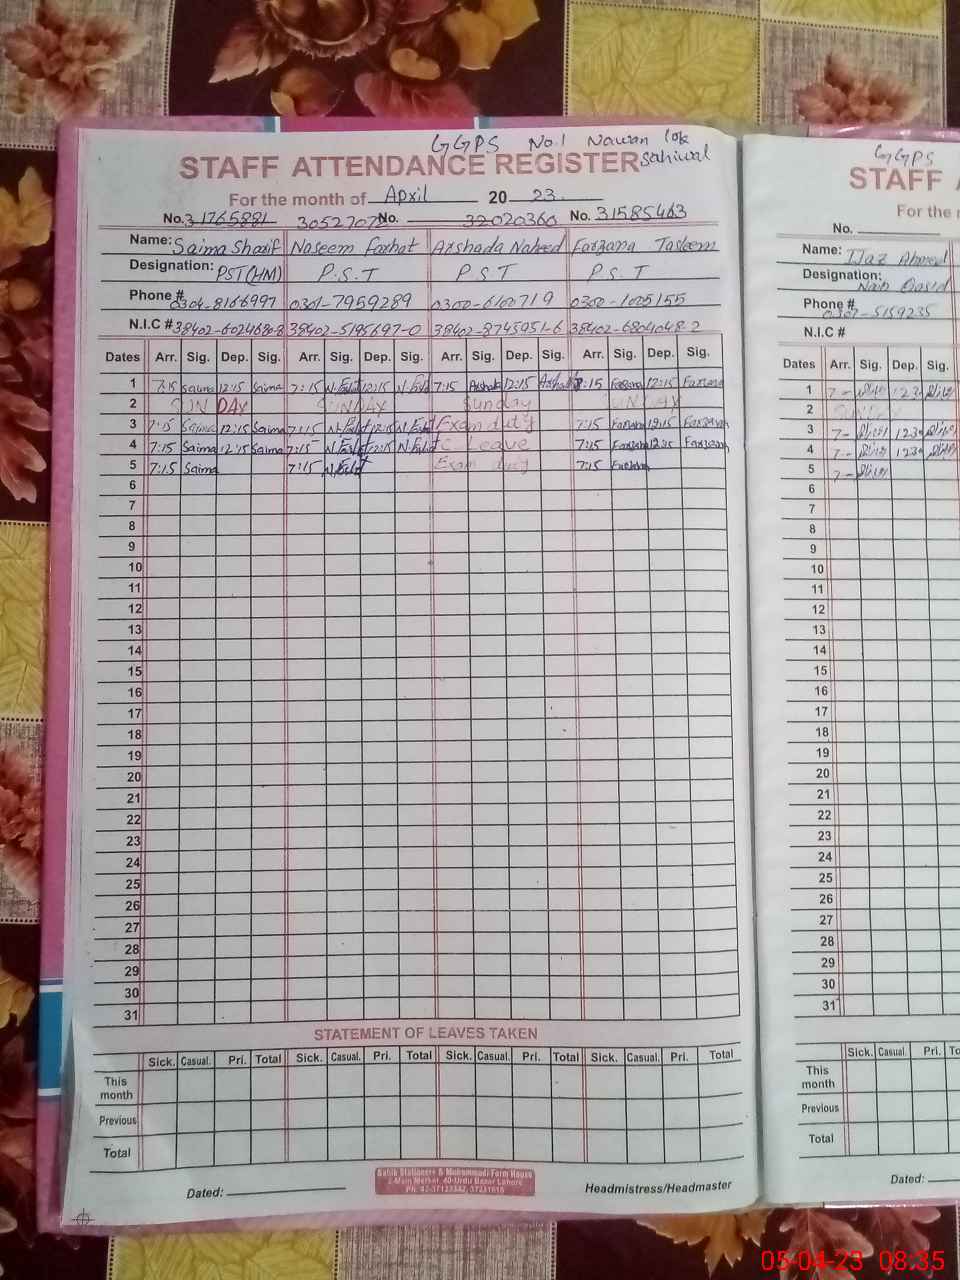 GGPS No.1 Nawan lok
STAFF ATTENDANCE REGISTER Sahiwal
For the month of April 20 23
No. 31765881 30527072 No. 32020360 No. 31585463
Name: Saima Sharif Naseem Farhat Arshada Naheed Farzana Tasleem
Designation: PST(HM) P.S.T P S T P.S.T
Phone # 0304-8166997 0301-7959289 0300-6100719 0300-1005155
N.I.C # 38402-6024680-8 38402-5185697-0 38402-8745951-6 38402-6804048-2
Dates Arr. Sig. Dep. Sig. Arr. Sig. Dep. Sig. Arr. Sig. Dep. Sig. Arr. Sig. Dep. Sig.
1 7:15 Saima 12:15 Saima 7:15 12:15 7:15 Arshada 12:15 Arshada 7:15 Farzana 12:15 Farzana
2 SUNDAY SUNDAY Sunday SUNDAY
3 7:15 Saima 12:15 Saima 7:15 12:15 Exam duty 7:15 Farzana 12:15 Farzana
4 7:15 Saima 12:15 Saima 7:15 12:15 C Leave 7:15 Farzana 12:15 Farzana
5 7:15 Saima 7:15 Exam duty 7:15 Farzana
6
7
8
9
10
11
12
13
14
15
16
17
18
19
20
21
22
23
24
25
26
27
28
29
30
31
STATEMENT OF LEAVES TAKEN
Sick. Casual. Pri. Total Sick. Casual. Pri. Total Sick. Casual. Pri. Total Sick. Casual. Pri. Total
This month
Previous
Total
2-Main Market, 40-Urdu Bazar Lahore
Dated: Headmistress/Headmaster
GGPS
STAFF
For the
No.
Name: Ijaz Ahmed
Designation: Naib Qasid
Phone # 0307-5159235
N.I.C #
Dates Arr. Sig. Dep. Sig.
1 7- 1230
2 SUNDAY
3 7- 1230
4 7- 1230
5 7-
6
7
8
9
10
11
12
13
14
15
16
17
18
19
20
21
22
23
24
25
26
27
28
29
30
31
Sick. Casual. Pri. To
This month
Previous
Total
Dated:
05-04-23 08:35